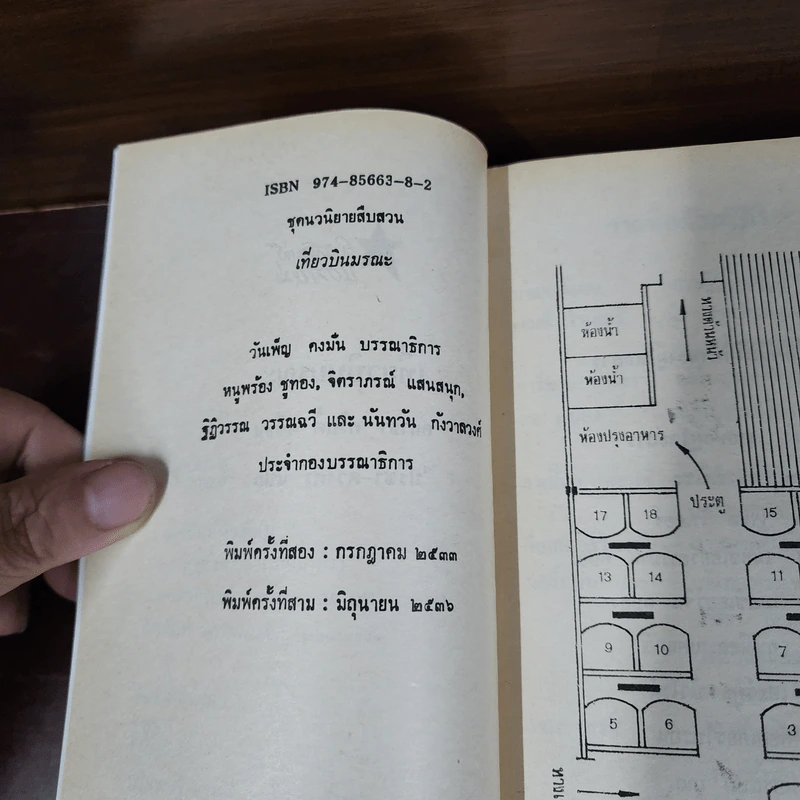 ISBN 974-85663-8-2
ชุดนวนิยายสืบสวน
เที่ยวบินมรณะ
วันเพ็ญ คงมั่น บรรณาธิการ
หนูพร้อง ชูทอง, จิตราภรณ์ แสนสนุก,
ฐิฏิวรรณ วรรณฉวี และ นันทวัน กังวาลวงศ์
ประจำกองบรรณาธิการ
พิมพ์ครั้งที่สอง : กรกฎาคม ๒๕๓๓
พิมพ์ครั้งที่สาม : มิถุนายน ๒๕๓๖
ทางด้านหน้า
ห้องน้ำ
ห้องน้ำ
ห้องปรุงอาหาร
ประตู
17 18 15
13 14 11
9 10 7
5 6 3